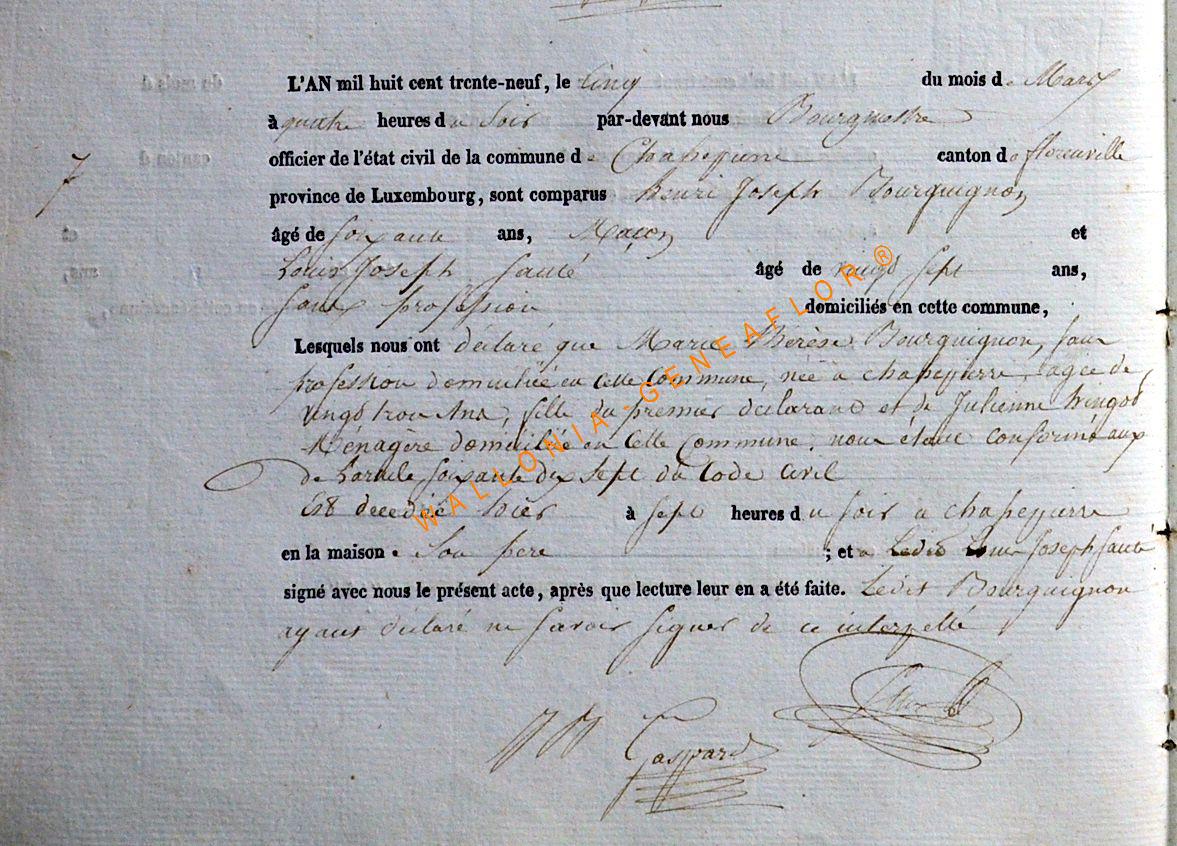 L'AN mil huit cent trente-neuf, le Cinq du mois de Mars
à quatre heures du Soir par-devant nous Bourgmestre
7
officier de l'état civil de la commune de Chapepierre canton de florenville
province de Luxembourg, sont comparus henri Joseph Bourguignon
âgé de soixante ans, Maçon et
Louis Joseph Sauté âgé de vingt sept ans,
Sans profession domiciliés en cette commune,
Lesquels nous ont déclaré que Marie Thérèse Bourguignon, sans
profession domiciliée en cette Commune, née à chapepierre, agée de
vingt trois Ans, fille du premier déclarant et de Julienne
Ménagère domiciliée en Cette Commune, nous étant conformé aux
de L'article soixante dix Sept du Code Civil
Est decedée hier à Sept heures du soir a chapepierre
en la maison de Son pere ; et a Ledit Louis Joseph Sauté
signé avec nous le présent acte, après que lecture leur en a été faite. Ledit Bourguignon
ayant déclaré ne savoir signer de ce interpellé
Gaspard
WALLONIA-GENEAFLOR®